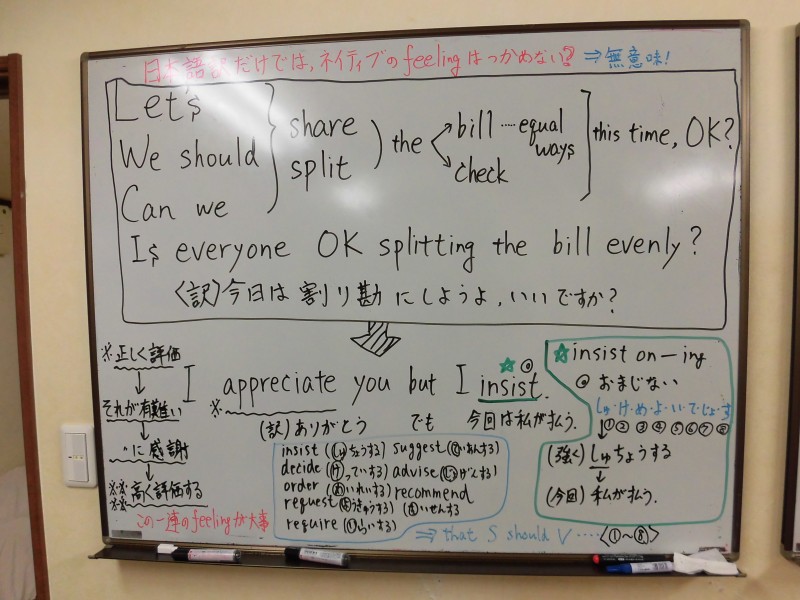 日本語訳だけでは、ネイティブのfeelingはつかめない? ⇒無意味!
Let's
We should
Can we
share
split
the
bill ‥‥ equal ways
check
this time, OK?
Is everyone OK splitting the bill evenly?
〈訳〉今日は割り勘にしようよ、いいですか?
※正しく評価
↓
それが有難い
↓
〃に感謝
↓
※※高く評価する
この一連のfeelingが大事
I appreciate you but I insist.
※
(訳)ありがとう でも 今回は私が払う。
insist (しゅちょうする) suggest (ていあんする)
decide (けっていする) advise (じょげんする)
order (めいれいする) recommend
request (ようきゅうする) (すいせんする)
require (いらいする)
⇒ that S should V ‥‥ <①~⑧>
☆insist on ーing
◎おまじない
しゅ・け・め・よ・い・て・じょ・す
①②③④⑤⑥⑦⑧
(強く)しゅちょうする
↓
(今回)私が払う。